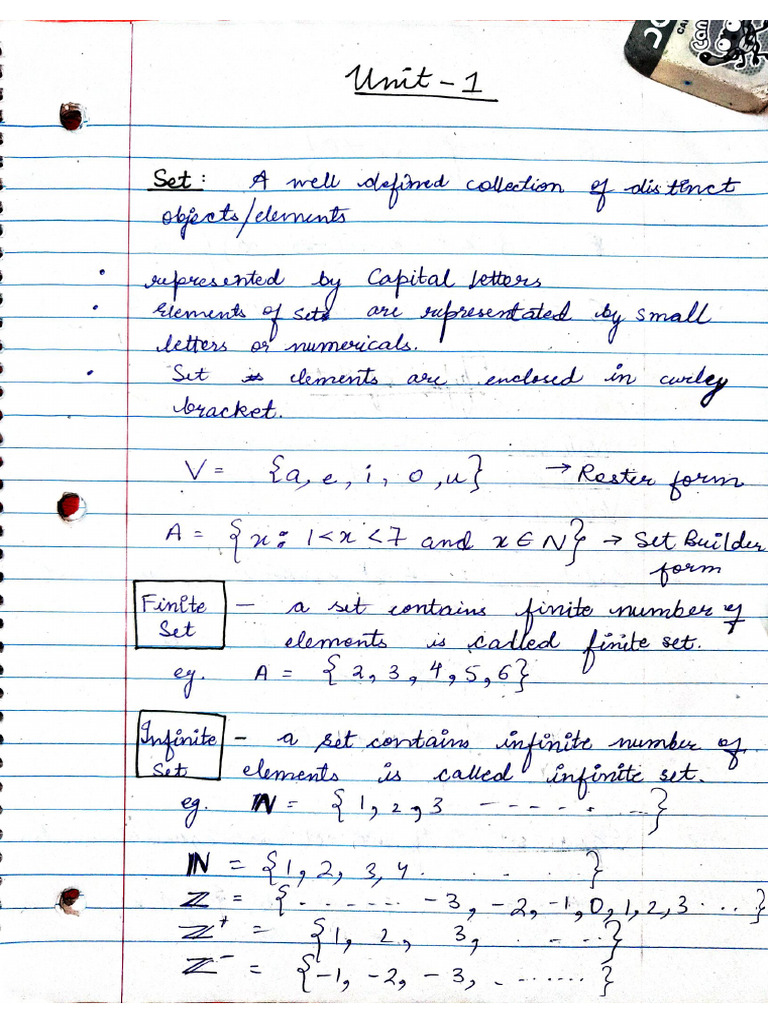 Unit - 1
Set : A well defined collection of distinct
objects/elements
• represented by Capital letters
• Elements of sets are representated by small
letters or numericals.
• Set elements are enclosed in curley
bracket.
V = {a, e, i, o, u} → Roster form
A = {x : 1<x<7 and x ∈ N} → Set Builder
form
Finite Set – a set contains finite number of
elements is called finite set.
eg. A = {2, 3, 4, 5, 6}
Infinite Set – a set contains infinite number of
elements is called infinite set.
eg. ℕ = {1, 2, 3 - - - - - . ...}
ℕ = {1, 2, 3, 4 . . . . . . .}
ℤ = {. ...... -3, -2, -1, 0, 1, 2, 3 . ...}
ℤ⁺ = {1, 2, 3, . - ..}
ℤ⁻ = {-1, -2, -3, . .......}